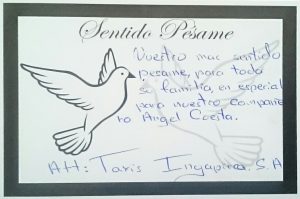 Sentido Pésame
Vuestro mas sentido
pesame, para toda
su familia, en especial
para nuestro compañe
ro Angel Cuesta.
Att: Taxis S.A